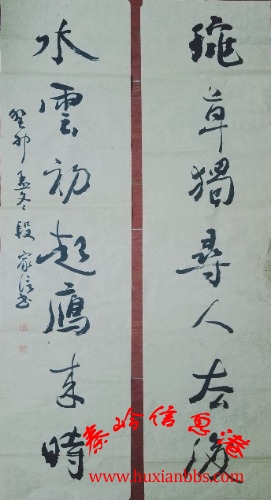 穐草獨尋人去後
水雲初起鴈来時
癸卯孟冬段家信书
秦岭信息港
www.huxianbbs.com